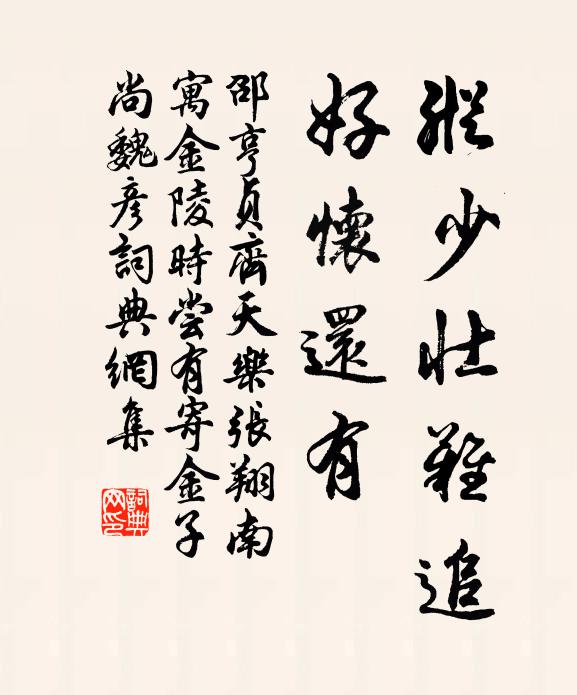 縱少壯難追
好懷還有
邵亨貞齊天樂張翔南
寓金陵時嘗有寄金子
尚魏彥詞典網集
詞典网印